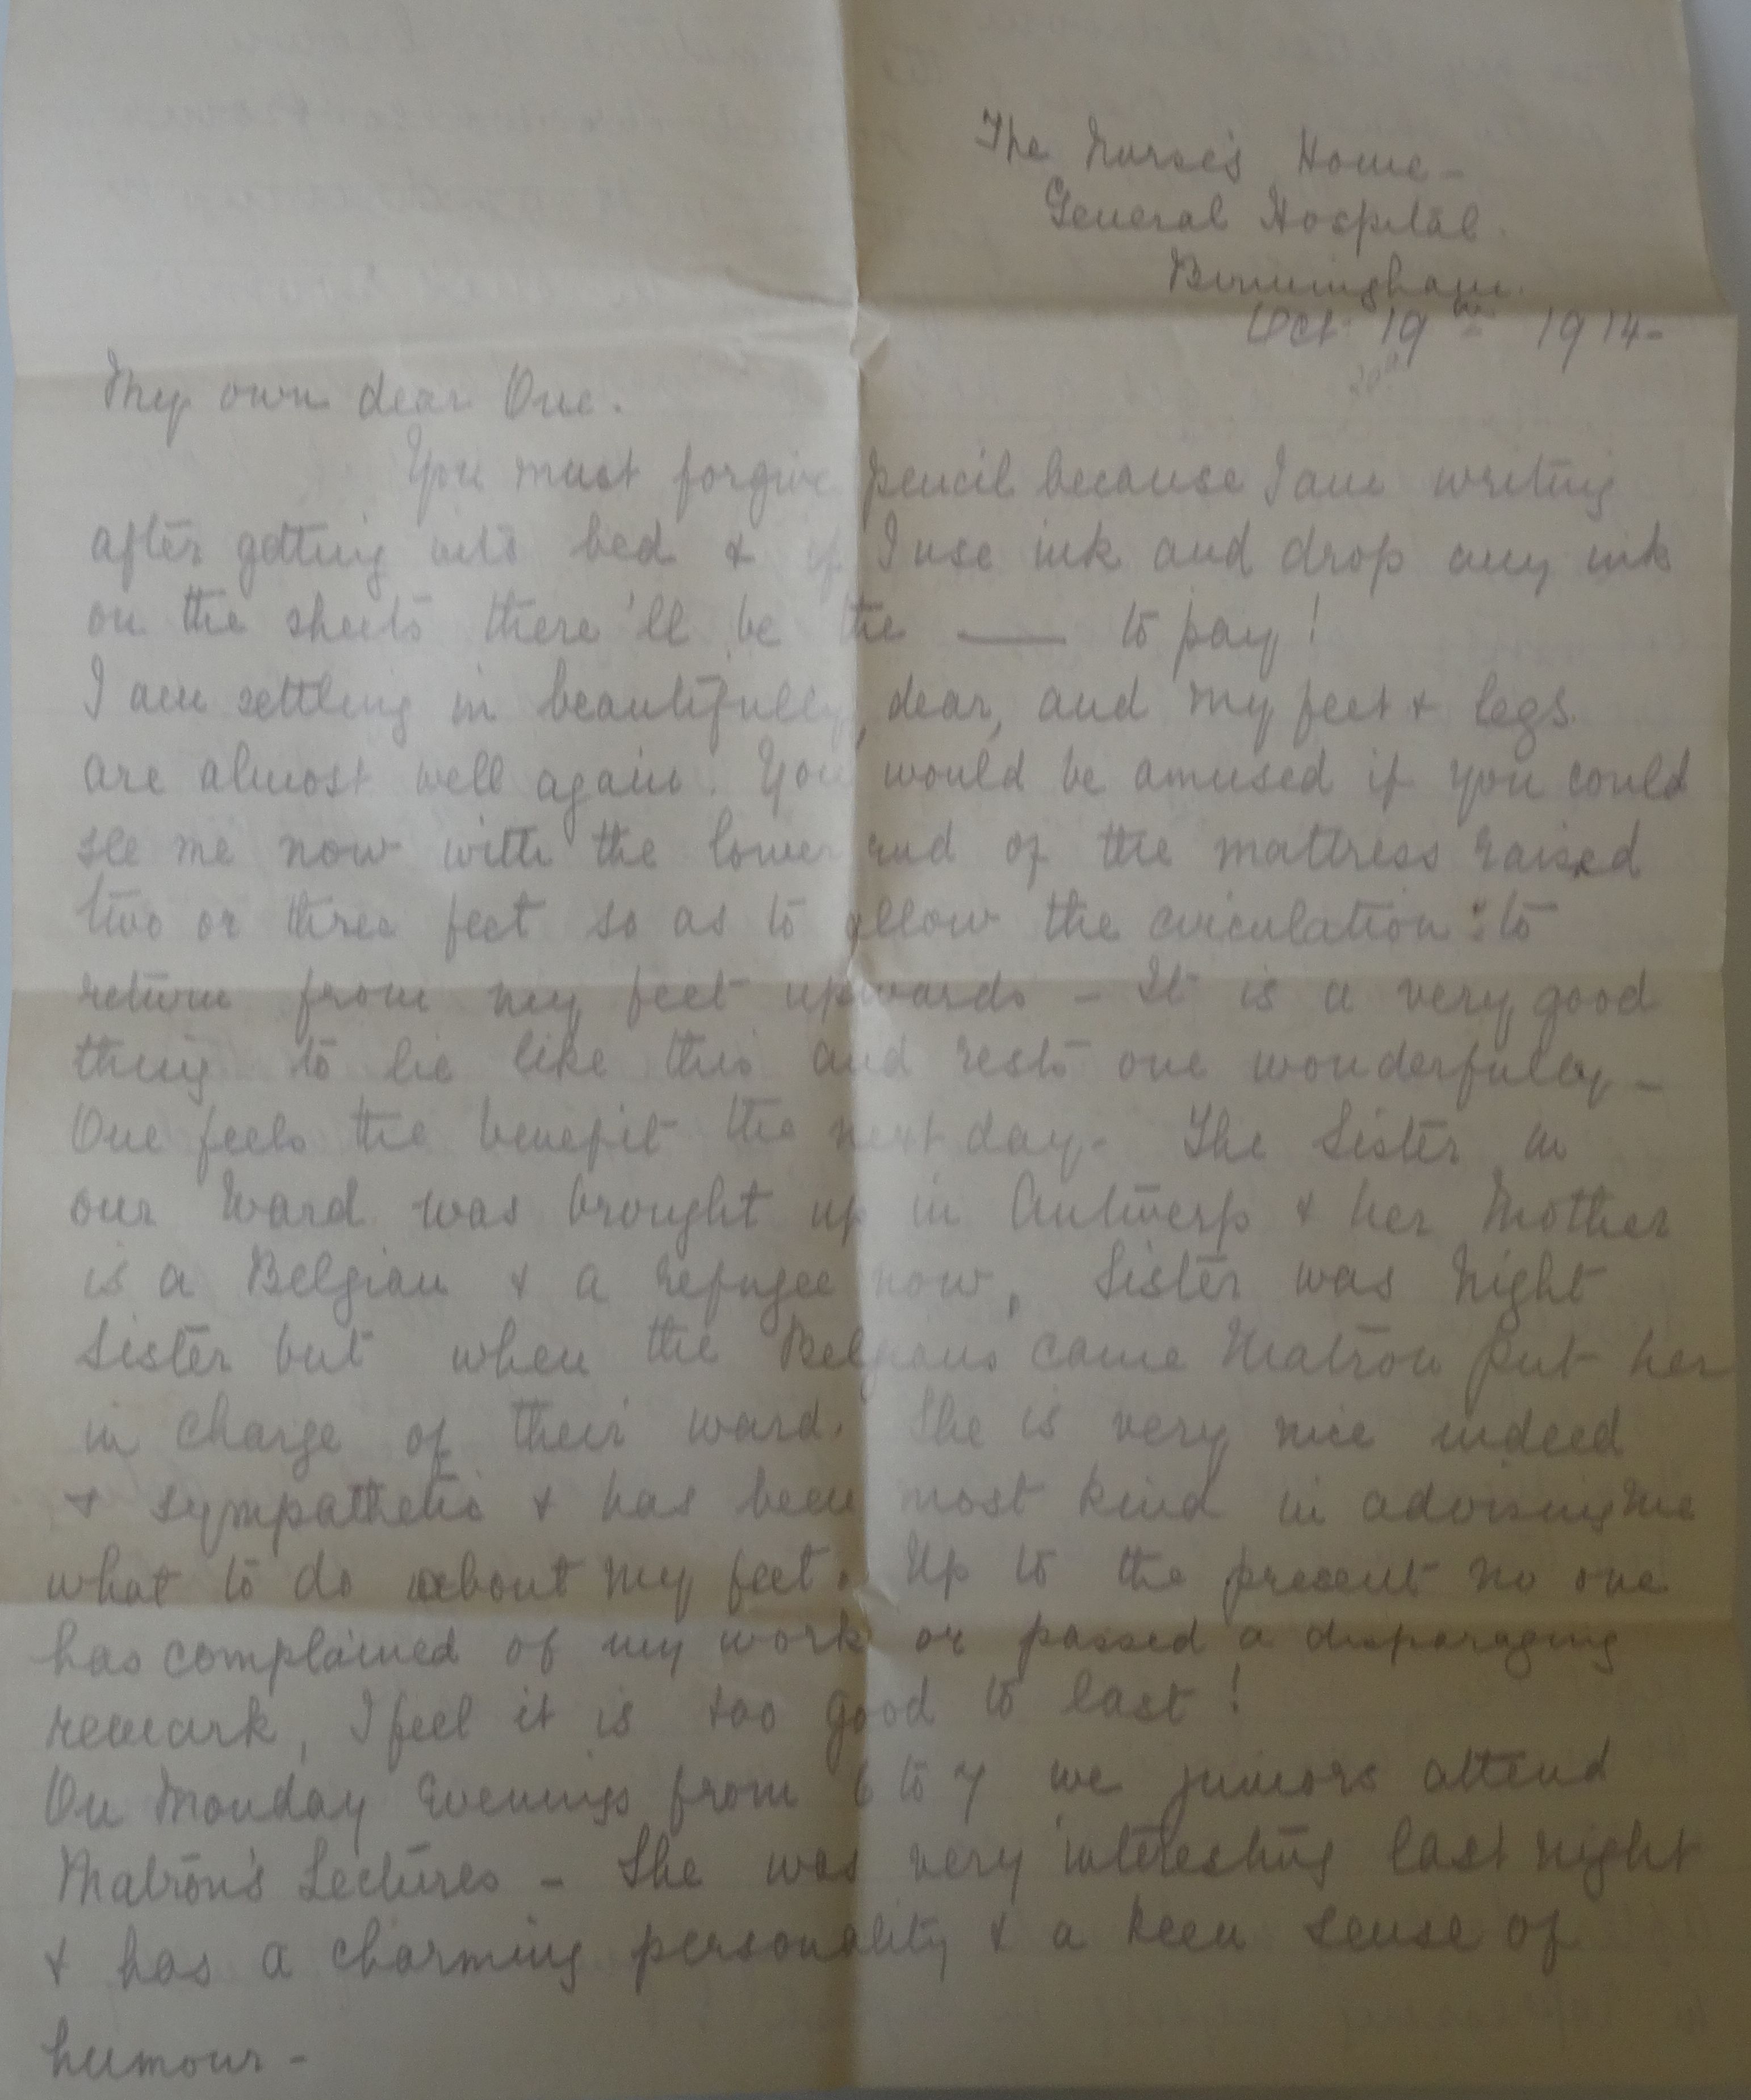 The Nurse's Home -
General Hospital.
Birmingham.
Oct 19th 1914 -
20th
My own dear One.
You must forgive pencil because I am writing
after getting into bed & if I use ink and drop any ink
on the sheets there'll be the —— to pay!
I am settling in beautifully, dear, and my feet & legs
are almost well again. You would be amused if you could
see me now with the lower end of the mattress raised
two or three feet so as to allow the circulation to
return from my feet upwards - It is a very good
thing to lie like this and rests one wonderfully -
One feels the benefit the next day - The Sister in
our Ward was brought up in Antwerp & her Mother
is a Belgian & a refugee now, Sister was Night
Sister but when the Belgians came Matron put her
in charge of their ward. She is very nice indeed
& sympathetic & has been most kind in advising me
what to do about my feet. Up to the present no one
has complained of my work or passed a disparaging
remark, I feel it is too good to last!
On Monday Evenings from 6 to 7 we juniors attend
Matron's Lectures - She was very interesting last night
& has a charming personality & a keen sense of
humour -